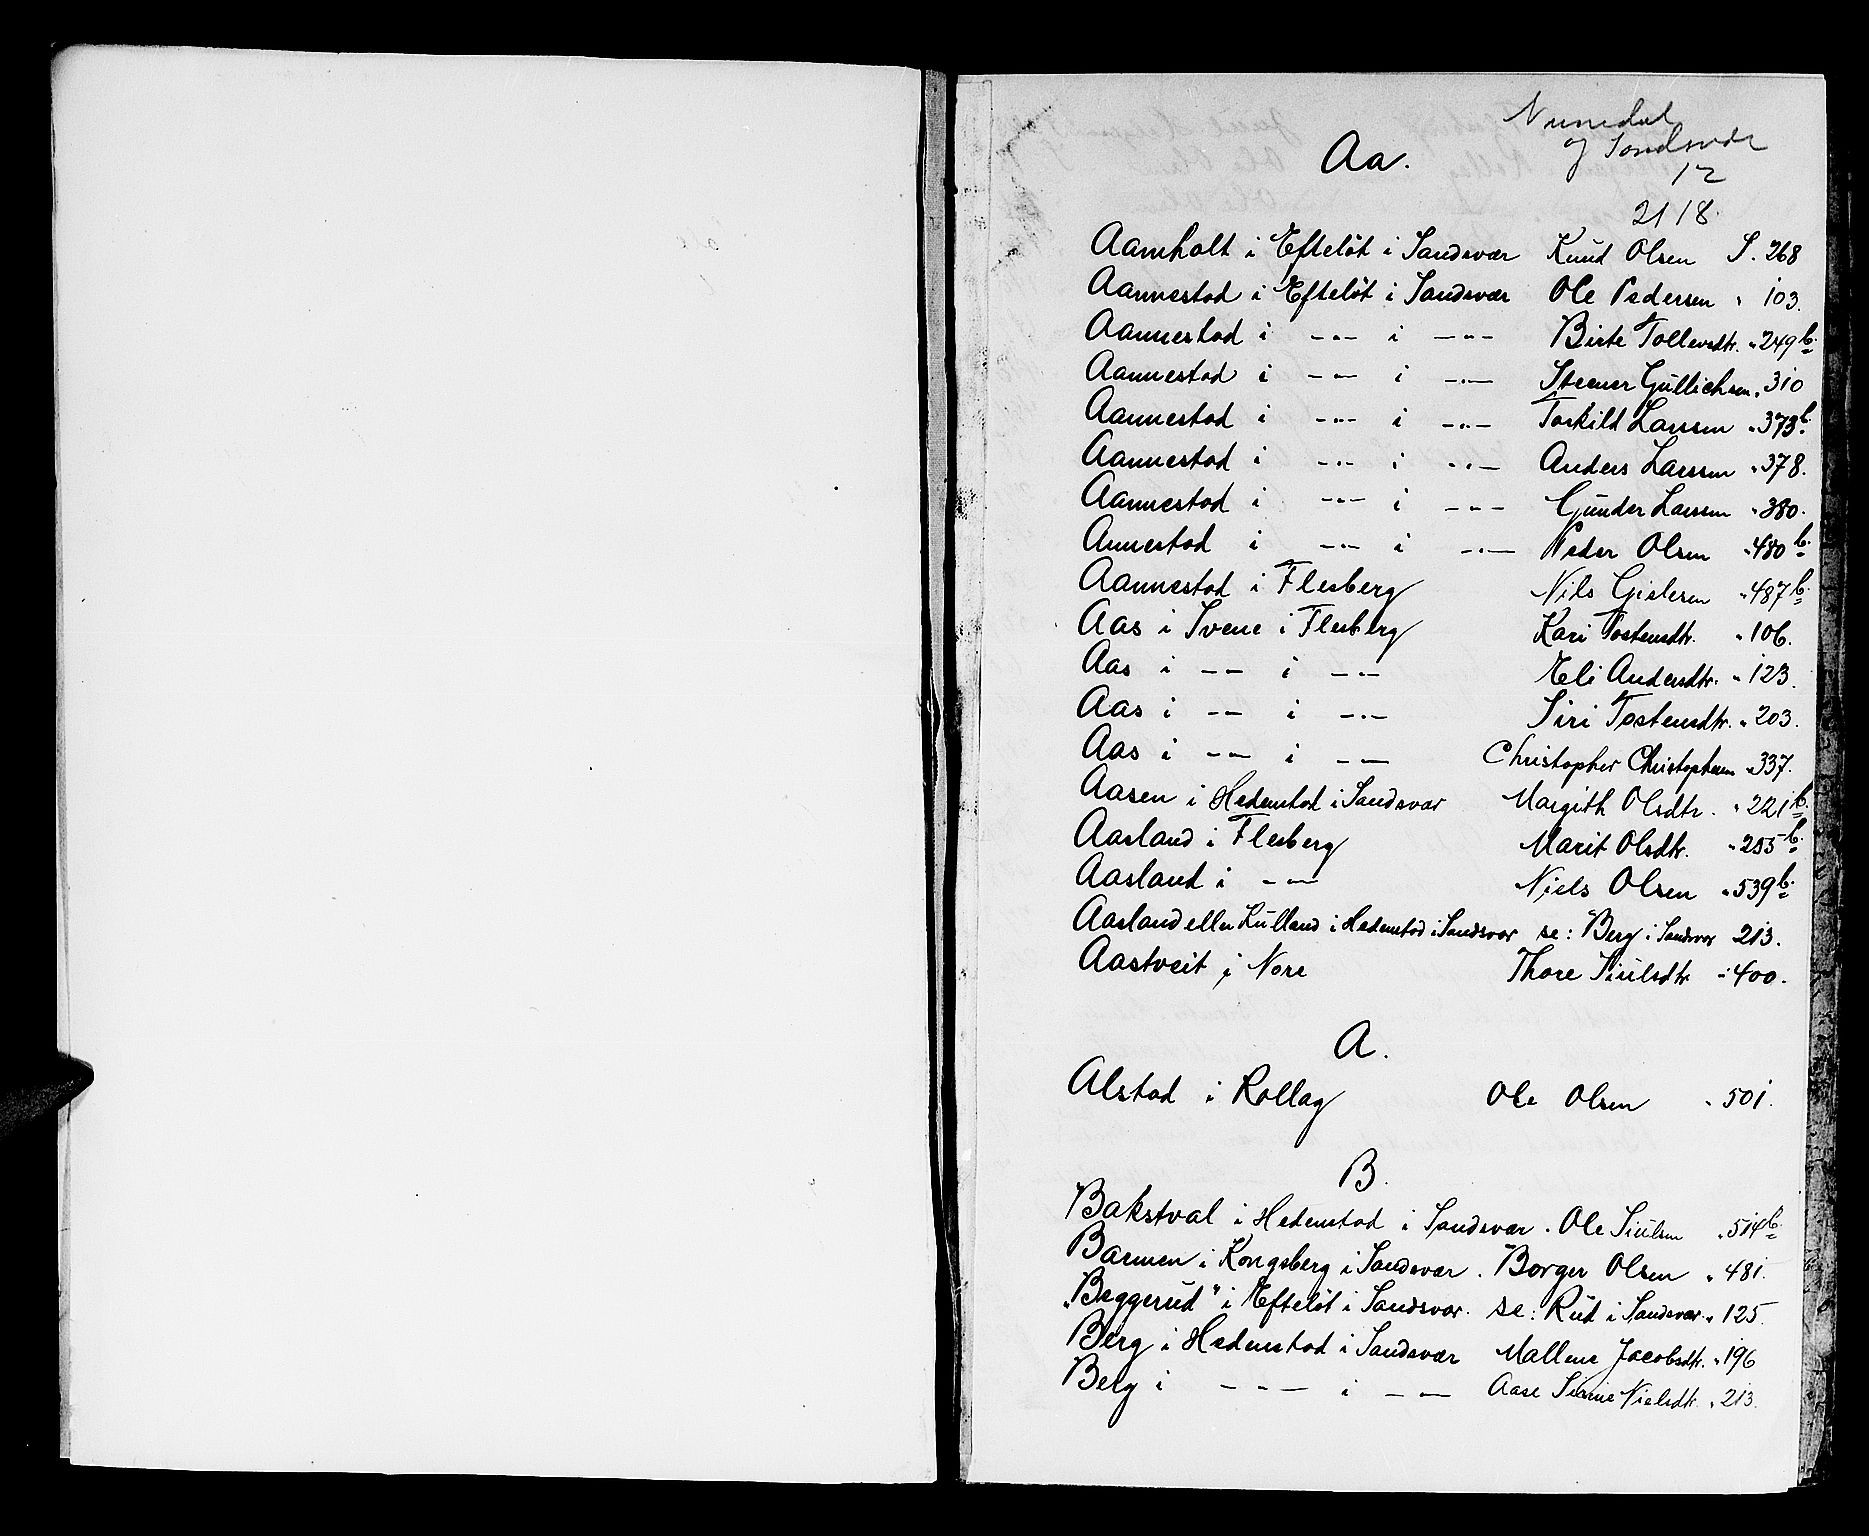 Numedal
og Sandsvær
12
2118.
Aa.
Aamholt i Efteløt i Sandsvær Knud Olsen S. 268
Aannestad i Efteløt i Sandsvær Ole Pedersen " 103.
Aannestad i -"- i -"- Birte Tollevsdtr. " 249 b.
Aannestad i -"- i -"- Steener Gullichsen " 310
Aannestad i -"- i -"- Torkild Larssen " 373 b.
Aannestad i -"- i -"- Anders Larssen " 378.
Aannestad i -"- i -"- Gunder Larssen " 380.
Annestad i -"- i -"- Peder Olsen " 480 b.
Aannestad i Flesberg Nils Gislesen " 487 b.
Aas i Svene i Flesberg Kari Tostensdtr. " 106.
Aas i -"- i -"- Eli Andersdtr. " 123.
Aas i -"- i -"- Siri Tostensdtr. " 203.
Aas i -"- i -"- Christopher Christophersen " 337.
Aasen i Hedenstad i Sandsvær Margith Olsdtr. " 221 b.
Aasland i Flesberg Marit Olsdtr. " 255 b.
Aasland i -"- Niels Olsen " 539 b.
Aasland eller Lulland i Hedenstad i Sandsvær se: Berg i Sandsvær 213.
Aastveit i Nore Thore Siulsdtr " 400.
A.
Alstad i Rollag Ole Olsen " 501.
B.
Bakstval i Hedenstad i Sandsvær. Ole Siulsen " 514 b.
Barmen i Kongsberg i Sandsvær. Borger Olsen " 481.
"Beggerud" i Efteløt i Sandsvær. se: Rud i Sandsvær " 125.
Berg i Hedenstad i Sandsvær Mallene Jacobsdtr. " 196
Berg i -"- i -"- Aase Nielsdtr. " 213.